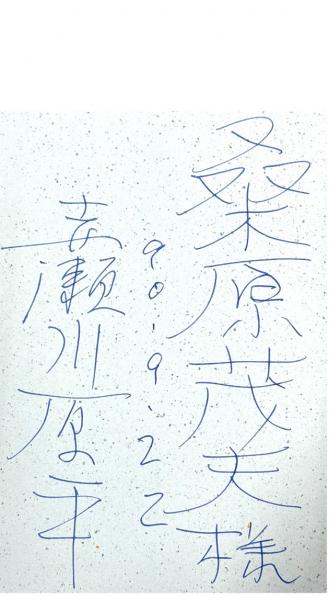 桑原茂夫様
90.9.22
赤瀬川原平